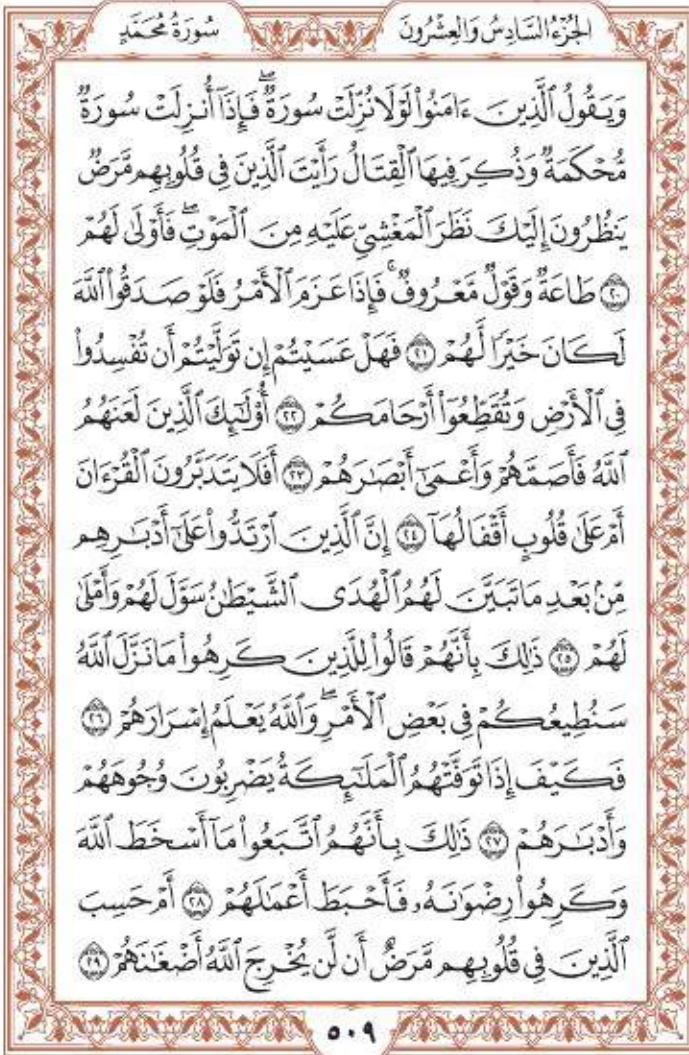 الجُزْءُ السَّادِسُ وَالعِشْرُونَ سُورَةُ مُحَمَّدٍ
وَيَقُولُ ٱلَّذِينَ ءَامَنُواْ لَوۡلَا نُزِّلَتۡ سُورَةٞۖ فَإِذَآ أُنزِلَتۡ سُورَةٞ
مُّحۡكَمَةٞ وَذُكِرَ فِيهَا ٱلۡقِتَالُ رَأَيۡتَ ٱلَّذِينَ فِي قُلُوبِهِم مَّرَضٞ
يَنظُرُونَ إِلَيۡكَ نَظَرَ ٱلۡمَغۡشِيِّ عَلَيۡهِ مِنَ ٱلۡمَوۡتِۖ فَأَوۡلَىٰ لَهُمۡ
٢٠ طَاعَةٞ وَقَوۡلٞ مَّعۡرُوفٞۚ فَإِذَا عَزَمَ ٱلۡأَمۡرُ فَلَوۡ صَدَقُواْ ٱللَّهَ
لَكَانَ خَيۡرٗا لَّهُمۡ ٢١ فَهَلۡ عَسَيۡتُمۡ إِن تَوَلَّيۡتُمۡ أَن تُفۡسِدُواْ
فِي ٱلۡأَرۡضِ وَتُقَطِّعُوٓاْ أَرۡحَامَكُمۡ ٢٢ أُوْلَٰٓئِكَ ٱلَّذِينَ لَعَنَهُمُ
ٱللَّهُ فَأَصَمَّهُمۡ وَأَعۡمَىٰٓ أَبۡصَٰرَهُمۡ ٢٣ أَفَلَا يَتَدَبَّرُونَ ٱلۡقُرۡءَانَ
أَمۡ عَلَىٰ قُلُوبٍ أَقۡفَالُهَآ ٢٤ إِنَّ ٱلَّذِينَ ٱرۡتَدُّواْ عَلَىٰٓ أَدۡبَٰرِهِم
مِّنۢ بَعۡدِ مَا تَبَيَّنَ لَهُمُ ٱلۡهُدَى ٱلشَّيۡطَٰنُ سَوَّلَ لَهُمۡ وَأَمۡلَىٰ
لَهُمۡ ٢٥ ذَٰلِكَ بِأَنَّهُمۡ قَالُواْ لِلَّذِينَ كَرِهُواْ مَا نَزَّلَ ٱللَّهُ
سَنُطِيعُكُمۡ فِي بَعۡضِ ٱلۡأَمۡرِۖ وَٱللَّهُ يَعۡلَمُ إِسۡرَارَهُمۡ ٢٦
فَكَيۡفَ إِذَا تَوَفَّتۡهُمُ ٱلۡمَلَٰٓئِكَةُ يَضۡرِبُونَ وُجُوهَهُمۡ
وَأَدۡبَٰرَهُمۡ ٢٧ ذَٰلِكَ بِأَنَّهُمُ ٱتَّبَعُواْ مَآ أَسۡخَطَ ٱللَّهَ
وَكَرِهُواْ رِضۡوَٰنَهُۥ فَأَحۡبَطَ أَعۡمَٰلَهُمۡ ٢٨ أَمۡ حَسِبَ
ٱلَّذِينَ فِي قُلُوبِهِم مَّرَضٌ أَن لَّن يُخۡرِجَ ٱللَّهُ أَضۡغَٰنَهُمۡ ٢٩
٥٠٩